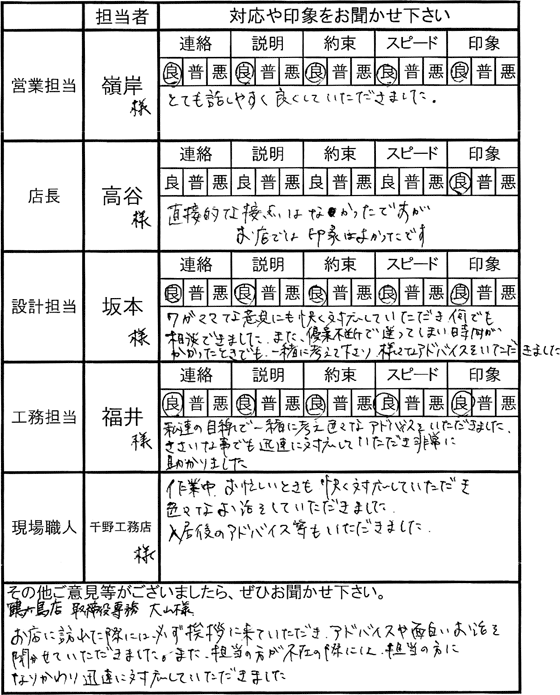 担当者 対応や印象をお聞かせ下さい
営業担当 嶺岸様
連絡 説明 約束 スピード 印象
良 普 悪 良 普 悪 良 普 悪 良 普 悪 良 普 悪
とても話しやすく良くしていただきました。
店長 高谷様
連絡 説明 約束 スピード 印象
良 普 悪 良 普 悪 良 普 悪 良 普 悪 良 普 悪
直接的な接点はなかったですが
お店では印象はよかったです
設計担当 坂本様
連絡 説明 約束 スピード 印象
良 普 悪 良 普 悪 良 普 悪 良 普 悪 良 普 悪
ワガママな意見にも快く対応していただき何でも
相談できました。また、優柔不断で迷ってしまい時間が
かかったときでも、一緒に考えて下さり様々なアドバイスをいただきました
工務担当 福井様
連絡 説明 約束 スピード 印象
良 普 悪 良 普 悪 良 普 悪 良 普 悪 良 普 悪
私達の目線で一緒に考え色々なアドバイスをいただきました。
ささいな事でも迅速に対応していただき非常に
助かりました
現場職人 千野工務店様
作業中、お忙しいときも快く対応していただき
色々なよい話をしていただきました。
入居後のアドバイス等もいただきました。
その他ご意見等がございましたら、ぜひお聞かせ下さい。
鶴ヶ島店 取締役専務 大山様
お店に訪れた際には必ず挨拶に来ていただき、アドバイスや面白いお話を
聞かせていただきました。また、担当の方が不在の際には、担当の方に
なりかわり迅速に対応していただきました